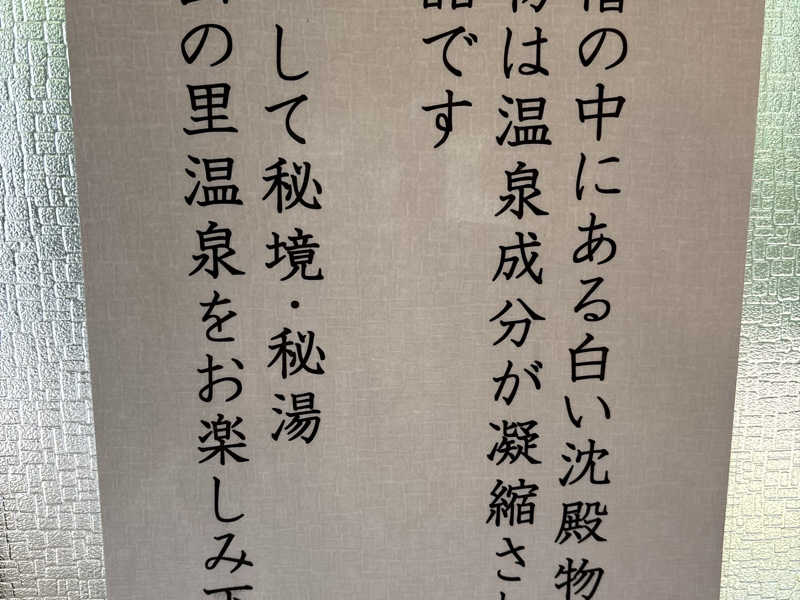 の中にある白い沈殿物
は温泉成分が凝縮さ
です
して秘境・秘湯
の里温泉をお楽しみ下